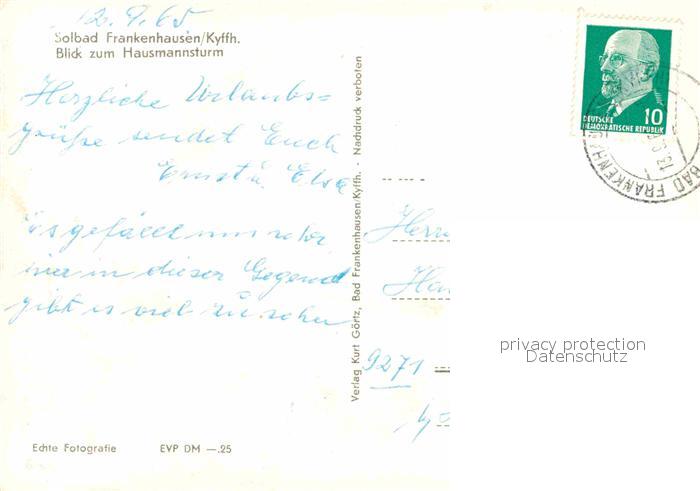 12.9.65
Solbad Frankenhausen/Kyffh.
Blick zum Hausmannsturm
Herzliche Urlaubs=
grüße sendet Euch
Ernst u. Elsa
Es gefällt uns sehr
hier in dieser Gegend
gibt es viel zu sehen
Echte Fotografie EVP DM —.25
Verlag Kurt Görtz, Bad Frankenhausen/Kyffh. - Nachdruck verboten
DEUTSCHE
DEMOKRATISCHE REPUBLIK
10
BAD FRANKENHA
Herrn
9271
privacy protection
Datenschutz